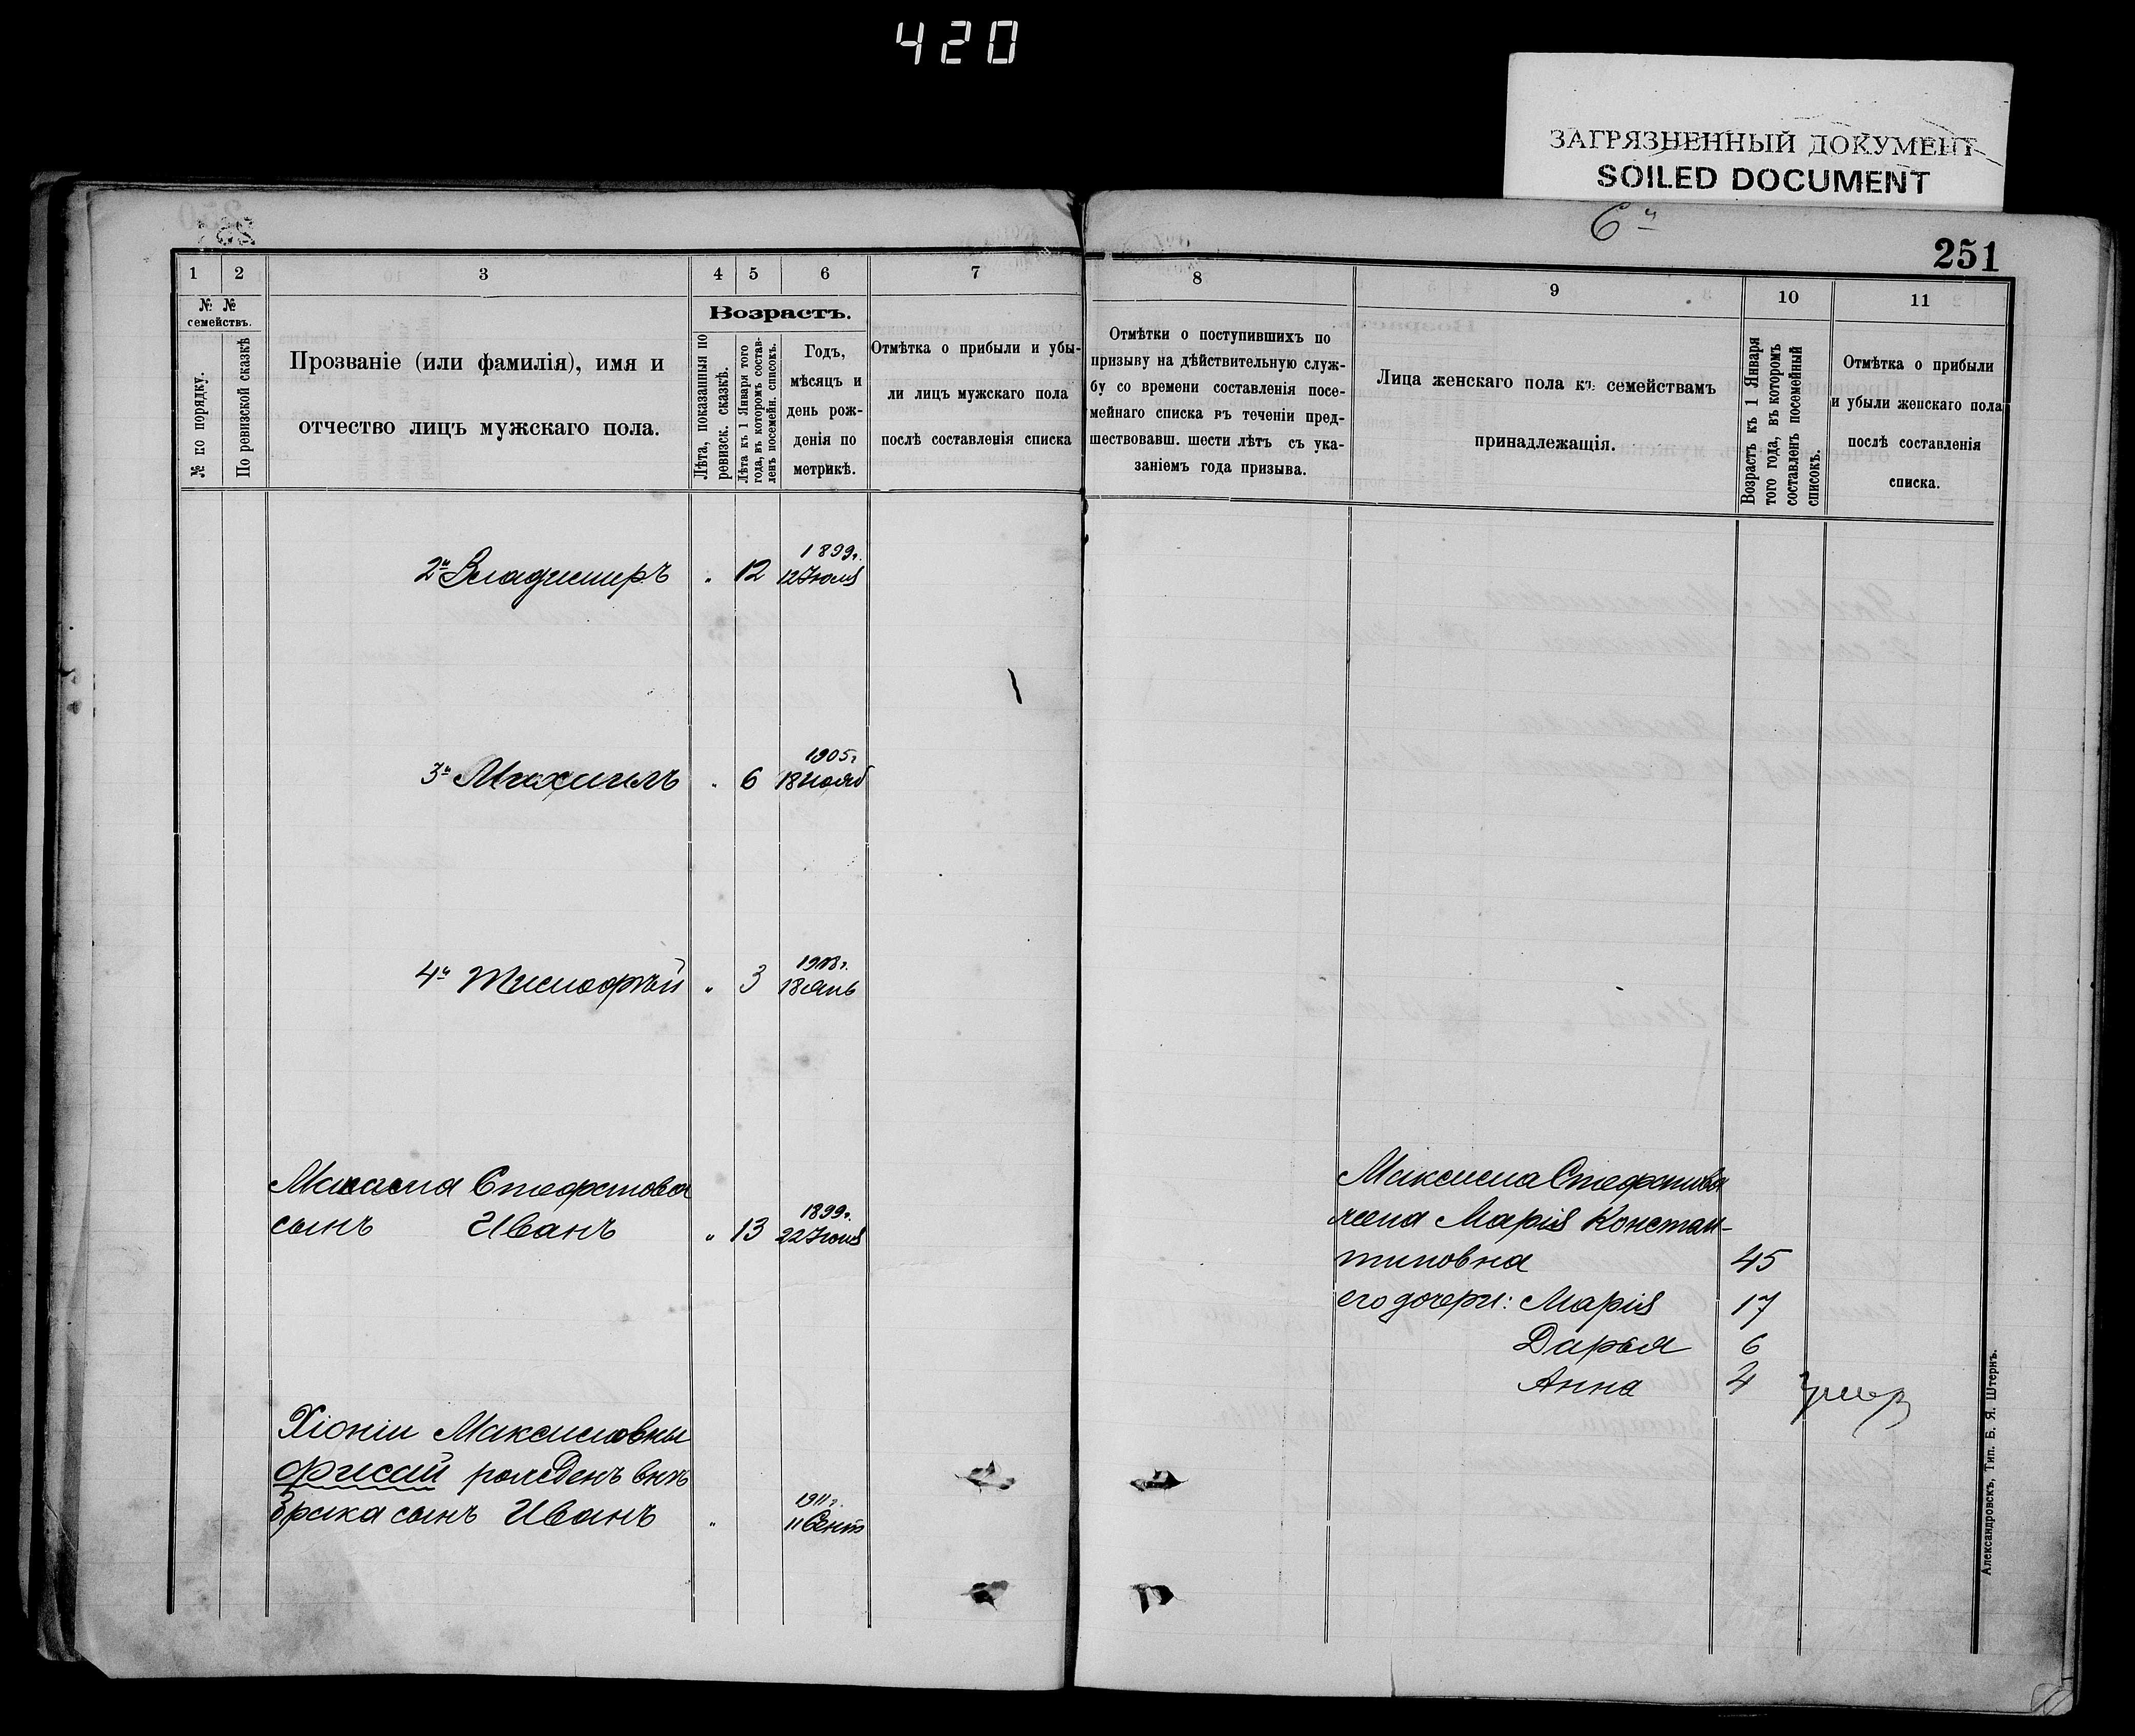 420
ЗАГРЯЗНЕННЫЙ ДОКУМЕНТ
SOILED DOCUMENT
6й
251
1 2 3 4 5 6 7
№ №
семействъ.
№ по порядку.
По ревизской сказкѣ
Прозваніе (или фамилія), имя и
отчество лицъ мужскаго пола.
Возрастъ.
Лѣта, показанныя по
ревизск. сказкѣ.
Лѣта къ 1 Января того
года, въ которомъ состав-
ленъ посемейн. списокъ.
Годъ,
мѣсяцъ и
день рож-
денія по
метрикѣ.
Отмѣтка о прибыли и убы-
ли лицъ мужскаго пола
послѣ составленія списка
8 9 10 11
Отмѣтки о поступившихъ по
призыву на дѣйствительную служ-
бу со времени составленія посе-
мейнаго списка въ теченіи пред-
шествовавш. шести лѣтъ съ ука-
заніемъ года призыва.
Лица женскаго пола къ семействамъ
принадлежащія.
Возрастъ къ 1 Января
того года, въ которомъ
составленъ посемейный
списокъ.
Отмѣтка о прибыли
и убыли женскаго пола
послѣ составленія
списка.
1899г.
2й Владимиръ " 12 12 Июля
1905г
3й Михаилъ " 6 18 Нояб
1908г.
4й Тимофѣй " 3 18 Янв
Максима Стефанова
1899г.
сынъ Иванъ " 13 22 Июля
Хіоніи Максимовны
рожденъ внѣ
брака сынъ Иванъ "
1911г.
11 Сент
Максима Стефанова
жена Марія Констан-
тиновна 45
его дочери: Марія 17
Дарья 6
Анна 4 умер
Александровскъ, Тип. Б. Я. Штернъ.